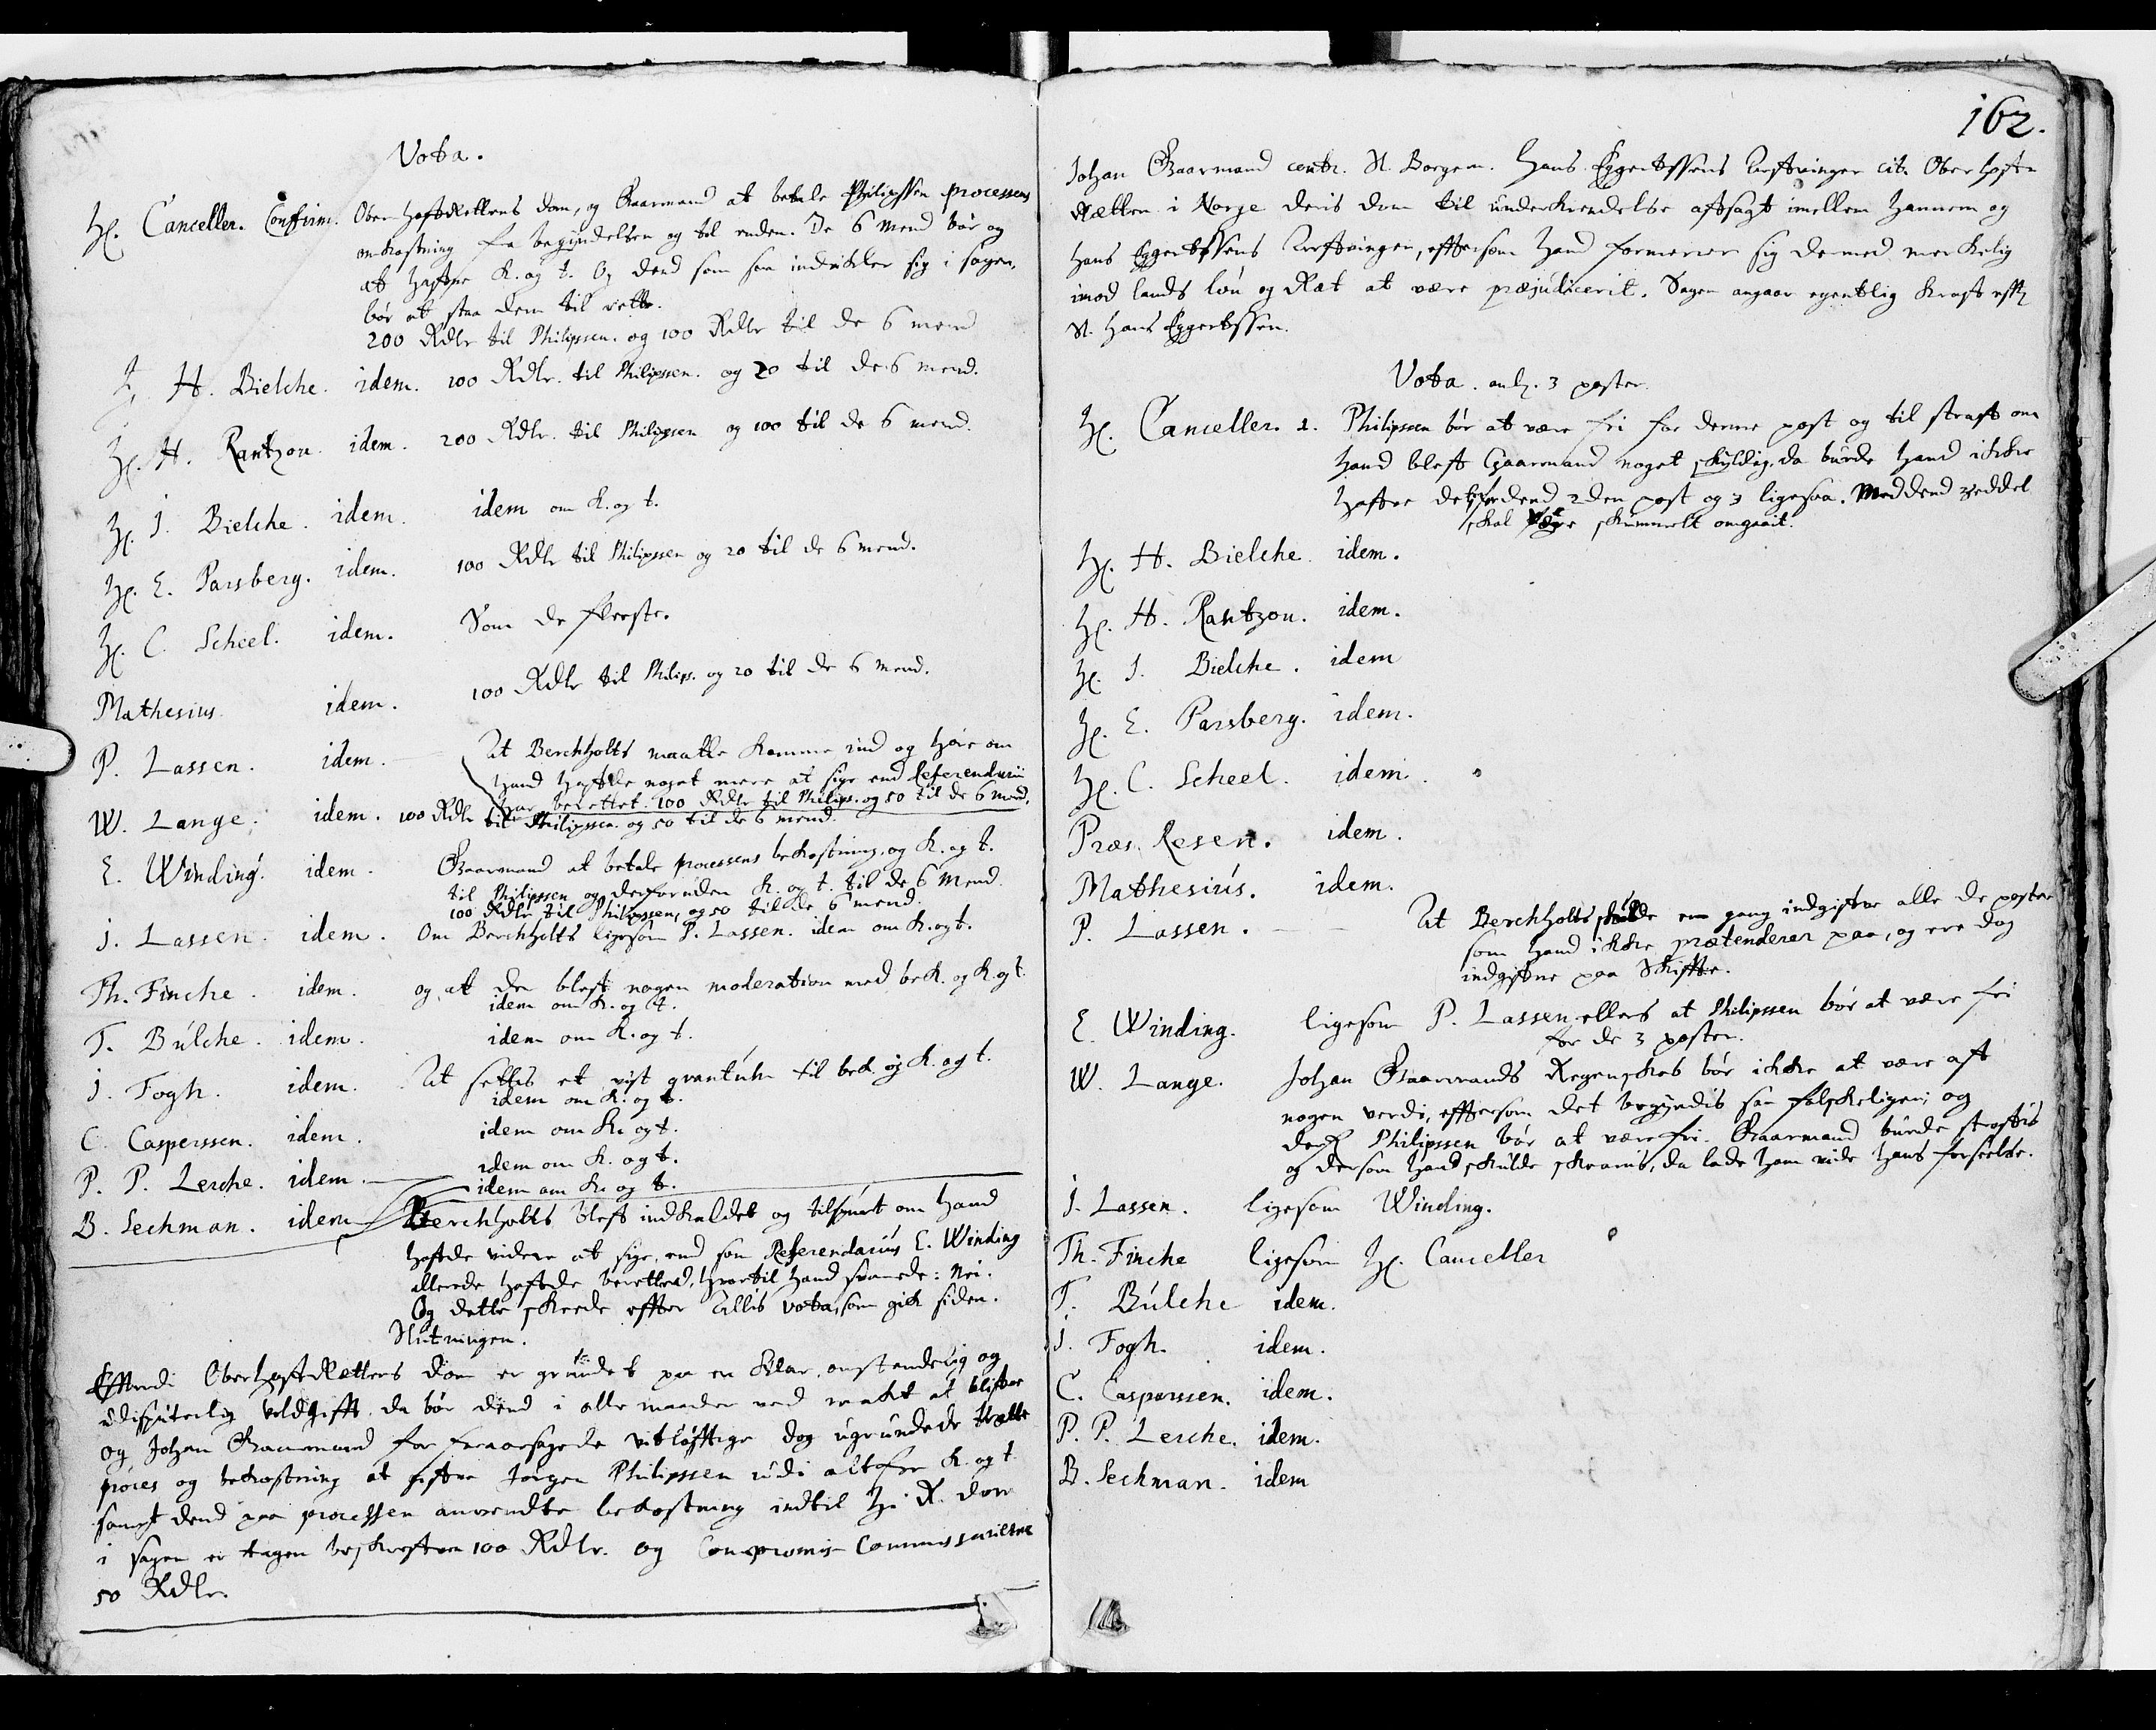 Vota.
H. Canceller. Confirm. Ober Hofrettens dom, og Gaarmand at betale Philipssen processens
omkostning fra begyndelsen og til enden. De 6 Mend bør og
at hafve K. og t. Og dend som saa indvikler sig i sagen,
bør at staa dem til rette.
200 Rdlr til Philipssen. og 100 Rdlr til de 6 mend
H. H. Bielche. idem. 100 Rdlr. til Philipssen. og 20 til de 6 mend.
H. H. Rantzou. idem. 200 Rdlr. til Philipssen og 100 til de 6 mend.
H. J. Bielche. idem. idem om K. og t.
H. E. Parsberg. idem. 100 Rdlr til Philipssen og 20 til de 6 mend.
H. C. Scheel. idem. Som de fleeste.
Mathesius idem. 100 Rdlr til Philips. og 20 til de 6 mend.
P. Lassen. idem. At Berchholts maatte komme ind og høre om
hand hafde noget mere at sige end Referendarii
har berettet. 100 Rdlr til Philips. og 50 til de 6 mend.
W. Lange. idem. 100 Rdlr til Philipssen. og 50 til de 6 mend.
E. Winding. idem. Gaarmand at betale processens bekostning, og K. og t.
til Philipssen og desforuden K. og t. til de 6 Mend.
100 Rdlr til Philipssen, og 50 til de 6 mend.
J. Lassen. idem. Om Berchholts ligesom P. Lassen. idem om K. og t.
Th. Finche. idem. og at der blef nogen moderation med bek. og K. og t.
idem om K. og t.
T. Bülche. idem. idem om K. og t.
J. Fogh. idem. At settes et vist qvantum til bek. og K. og t.
idem om K. og t.
C. Casperssen. idem. idem om K. og t.
P. P. Lerche. idem. idem om K. og t.
idem om K. og t.
B. Lechman. idem Berchholts blef indkaldet og tilspurt om hand
hafde videre at sige, end som Referendarius E. Winding
allerede hafde berettet, hvortil hand svarede: Nei.
Og dette skeede effter Alles vota, som gik siden.
Slutningen.
Efterdi Oberhofrettens dom er grundet paa en klar, omstendelig og
udisputerlig voldgifft, da bør dend i alle maader ved magt at blifve
og Johan Gaarmand for foraarsagede vitløfftige dog ugrundede trette
proces og bekostning at gifve Jørgen Philipssen udi alt for K. og t.
sampt dend paa processen anvendte bekostning indtil H. R. dom
i sagen er tagen beskrefven 100 Rdlr. og Compromis Commissarierne
50 Rdlr.
162.
Johan Gaarmand contr. Sl. Borgem. Hans Eggertssens Arfvinger cit. Ober Hofs
Rætten i Norge deris dom til underkiendelse afsagt imellem hannem og
Hans Eggertssens Arfvinger, efftersom hand formener sig dermed merkelig
imod lands lov og Ræt at være præjudicerit. Sagen angaar egentlig Kraf eff
Sl. Hans Eggertssen.
Vota. anl. 3 poster.
H. Canceller. 1. Philipssen bør at være fri for denne post og til straf om
hand blef Gaarmand noget skyldig, da burde hand ikke
hafve det for dend 2den post og 3 ligesaa. Med dend zeddel
skal være skummelt omgaait.
H. H. Bielche. idem.
H. H. Rantzou. idem.
H. J. Bielche. idem
H. E. Parsberg. idem.
H. C. Scheel. idem.
Præs. Resen. idem.
Mathesiús. idem.
P. Lassen. At Berchholts skulde en gang indgifve alle de poster
som hand ikke prætenderer paa, og ere dog
indgifne paa Skiffte.
E. Winding. ligesom P. Lassen, ellers at Philipssen bør at være fri
for de 3 poster.
W. Lange. Johan Gaarmands Regenskab bør ikke at være af
nogen verdi, effterdom det begyndis saa falskeligen; og
derf Philipssen bør at være fri. Gaarmand burde straffis
og dersom hand skulde skaanis, da lade ham vide hans forseelse.
J. Lassen. ligesom Winding.
Th. Finche ligesom H. Canceller
T. Bülche idem.
J. Fogh. idem.
C. Casperssen. idem.
P. P. Lerche. idem.
B. Lechman. idem